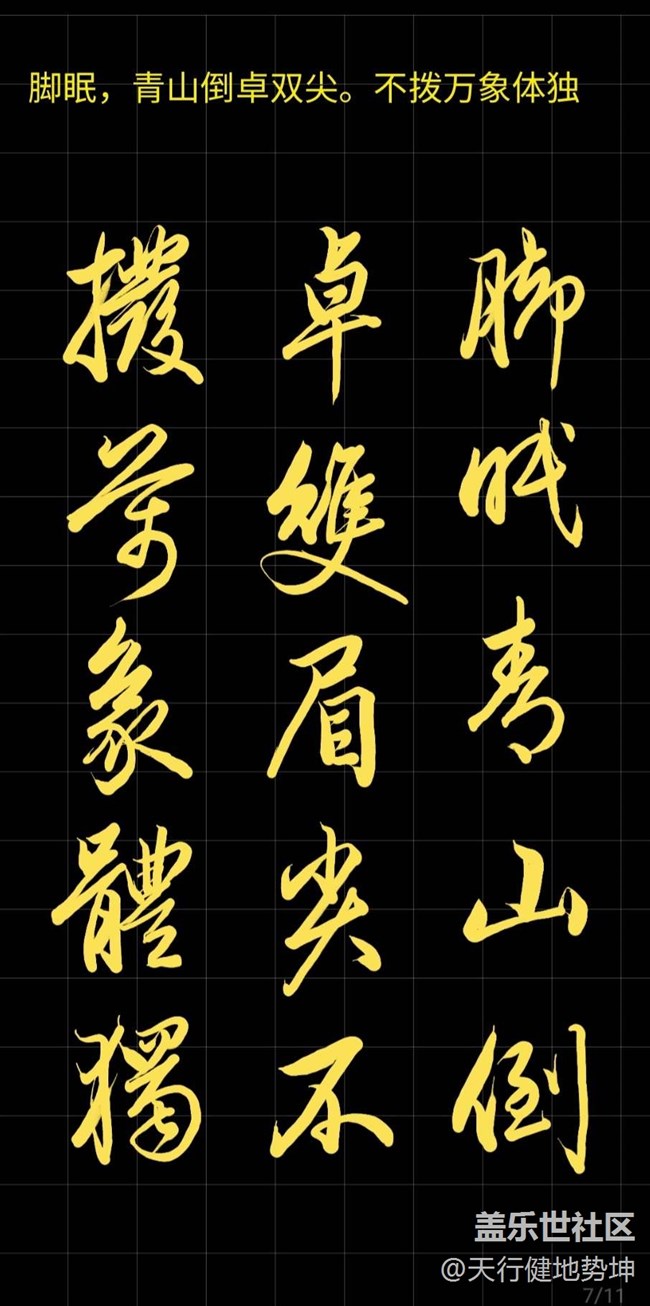 脚眠，青山倒卓双尖。不拨万象体独
腳眠青山倒
卓雙眉尖不
撥萬象體獨
盖乐世社区
@天行健地势坤
7/11